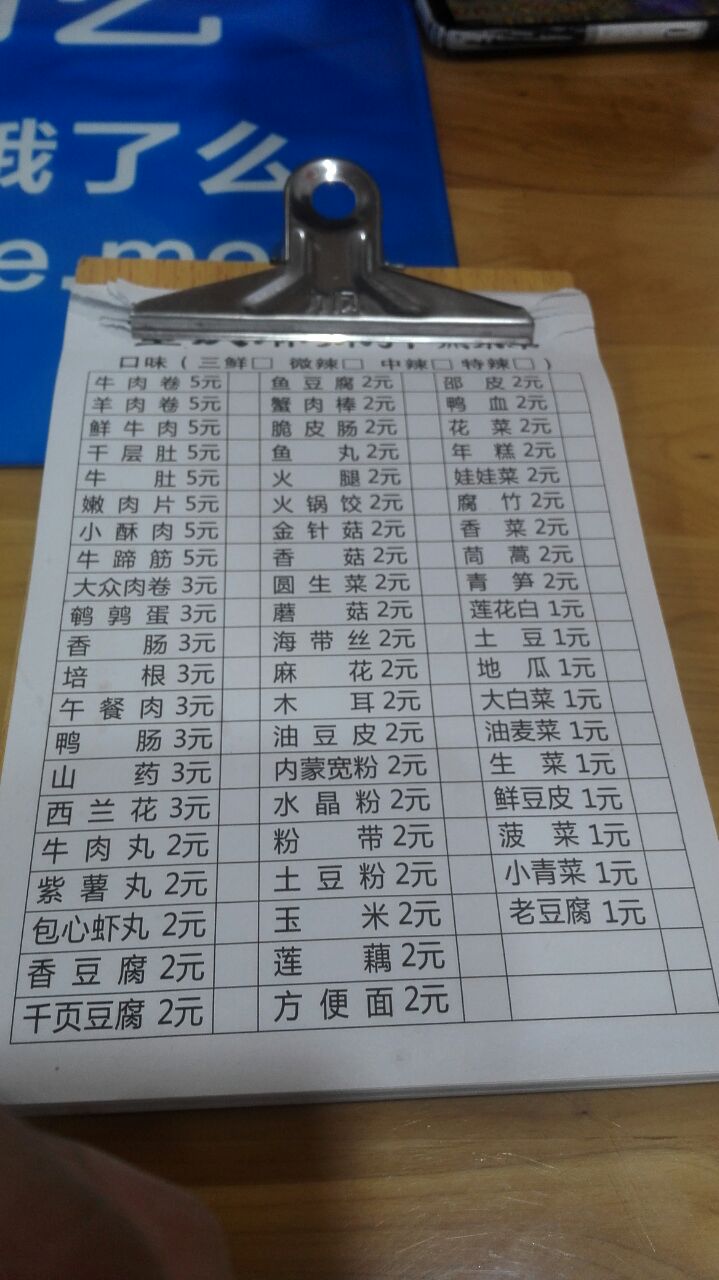 饿了么
口味（三鲜□ 微辣□ 中辣□ 特辣□）
牛肉卷 5元 鱼豆腐 2元 部皮 2元
羊肉卷 5元 蟹肉棒 2元 鸭血 2元
鲜牛肉 5元 脆皮肠 2元 花菜 2元
千层肚 5元 鱼丸 2元 年糕 2元
牛肚 5元 火腿 2元 娃娃菜 2元
嫩肉片 5元 火锅饺 2元 腐竹 2元
小酥肉 5元 金针菇 2元 香菜 2元
牛蹄筋 5元 香菇 2元 茼蒿 2元
大众肉卷 3元 圆生菜 2元 青笋 2元
鹌鹑蛋 3元 蘑菇 2元 莲花白 1元
香肠 3元 海带丝 2元 土豆 1元
培根 3元 麻花 2元 地瓜 1元
午餐肉 3元 木耳 2元 大白菜 1元
鸭肠 3元 油豆皮 2元 油麦菜 1元
山药 3元 内蒙宽粉 2元 生菜 1元
西兰花 3元 水晶粉 2元 鲜豆皮 1元
牛肉丸 2元 粉带 2元 菠菜 1元
紫薯丸 2元 土豆粉 2元 小青菜 1元
包心虾丸 2元 玉米 2元 老豆腐 1元
香豆腐 2元 莲藕 2元
千页豆腐 2元 方便面 2元